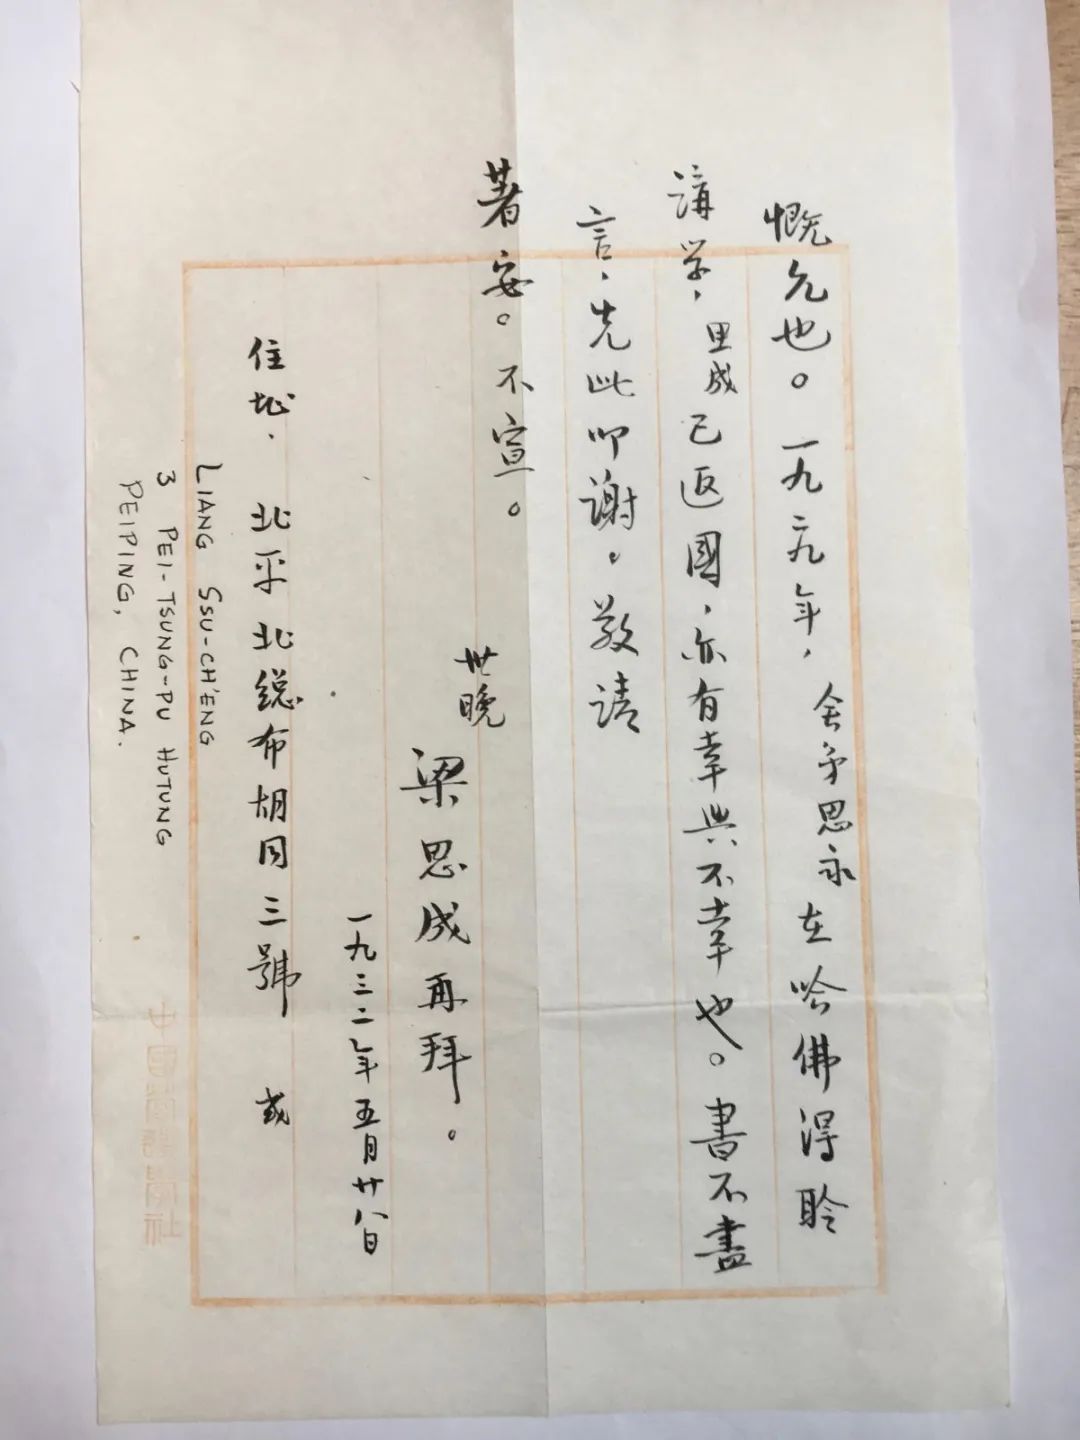 慨允也。一九二九年，舍弟思永在哈佛得聆
講学，思成已返國，亦有幸與不幸也。書不盡
言，先此叩謝。敬請
著安。不宣。
世晚
梁思成再拜。
一九三二年五月廿八日
住址．北平北総布胡同三號 或
LIANG SSU-CH'ENG
3 PEI-TSUNG-PU HUTUNG
PEIPING, CHINA.
中國營造學社